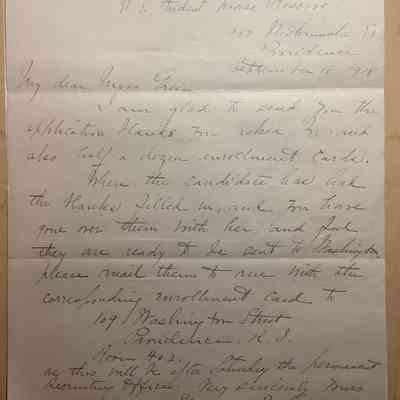 U.S. Student Nurse Reserve
Providence
September 18 1918
My dear Miss Green
I am glad to send you the
application blanks you asked for and
also half a dozen enrollment cards.
When the candidate has had
the blanks filled in, and you have
gone over them with her and find
they are ready to be sent to Washington
please mail them to me with the
corresponding enrollment card to
109 Washington Street
Providence R.I.
Room 402.
as this will be after Saturday the permanent
Recruiting Office. Very sincerely yours